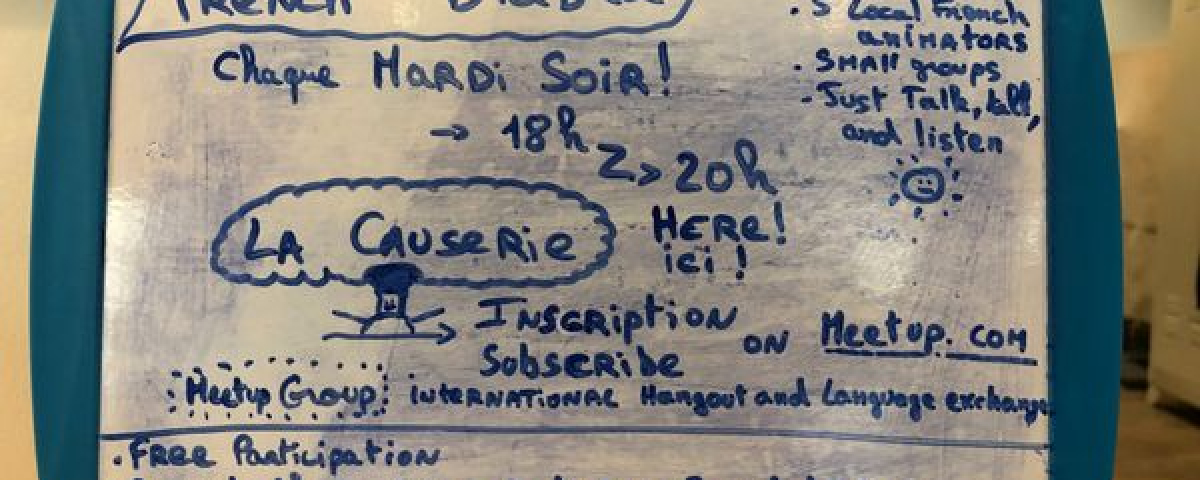 FRENCH
Chaque MARDI SOIR!
→ 18h
> 20h
LA CAUSERIE
HERE!
ici !
INSCRIPTION
SOBSCRIBE
ON Meetup.com
Meetup Group: INTERNATIONAL Hangout and Language exchange
. FREE Participation
. 5 Local French
ANIMATORS
. SMALL groups
- Just Talk, talk,
and listen